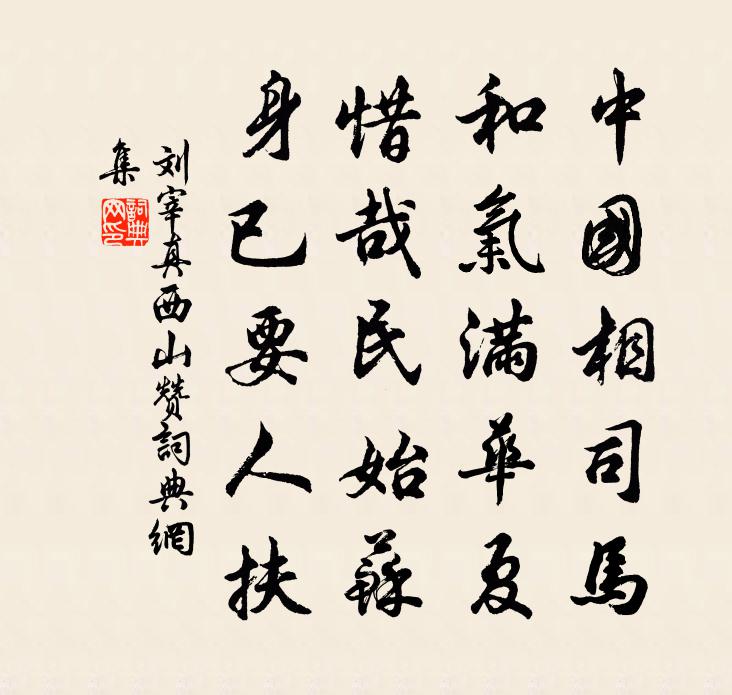 中國相司馬
和氣滿華夏
惜哉民始蘇
身已要人扶
刘宰真西山赞詞典網
集
詞典網印